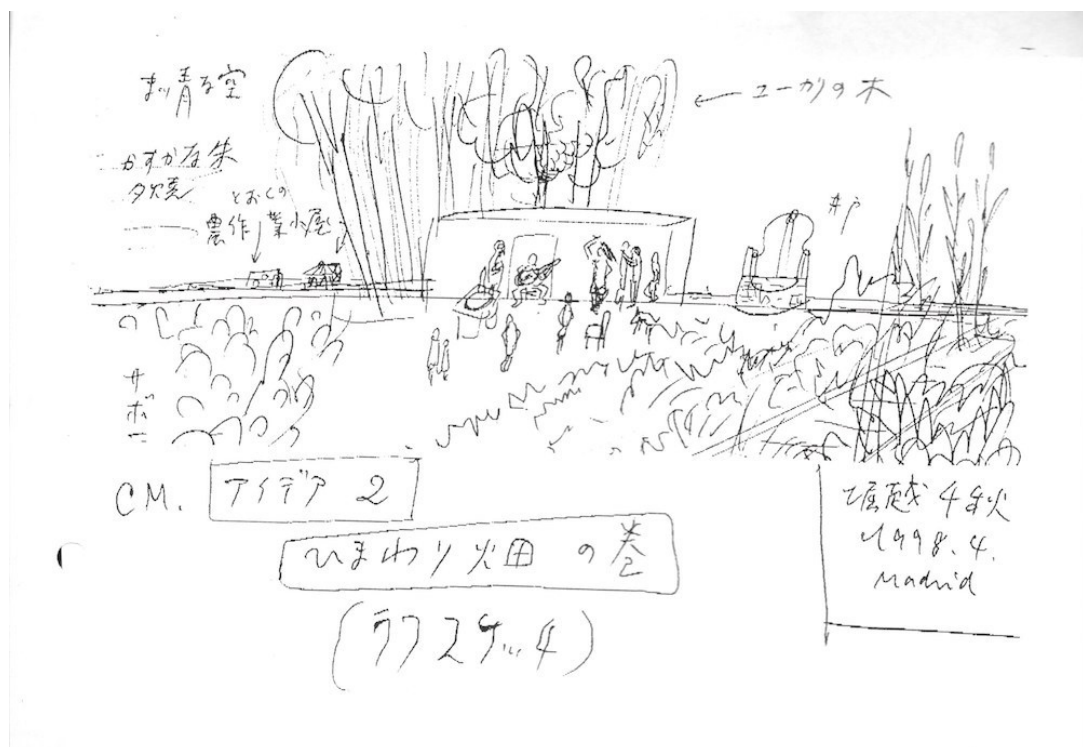 まっ青な空
かすかな朱
夕焼
とおくの
農作業小屋
← ユーカリの木
井戸
サボ
CM. アイデア 2
ひまわり畑 の巻
(ラフスケッチ)
堀越千秋
1998.4.
Madrid